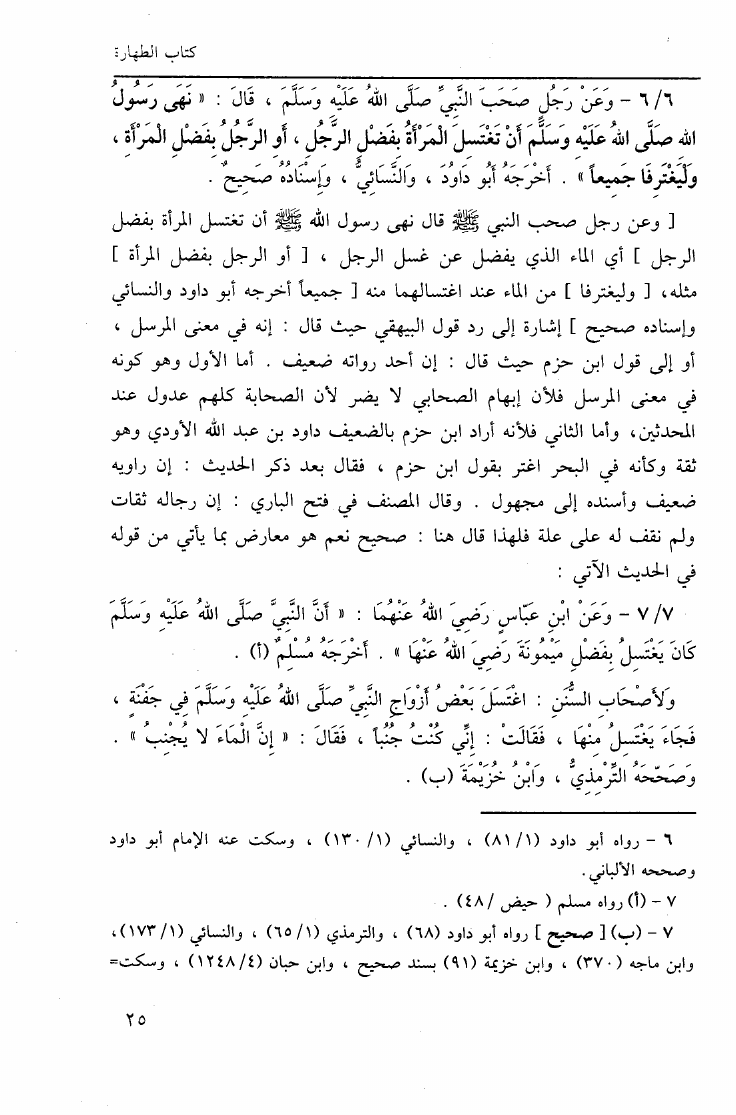 كتاب الطهارة
٦/٦ - وَعَنْ رَجُلٍ صَحِبَ النَّبِيَّ صَلَّى اللهُ عَلَيْهِ وَسَلَّمَ ، قَالَ : « نَهَى رَسُولُ
اللهِ صَلَّى اللهُ عَلَيْهِ وَسَلَّمَ أَنْ تَغْتَسِلَ الْمَرْأَةُ بِفَضْلِ الرَّجُلِ ، أَوِ الرَّجُلُ بِفَضْلِ الْمَرْأَةِ ،
وَلْيَغْتَرِفَا جَمِيعاً » . أَخْرَجَهُ أَبُو دَاوُدَ ، وَالنَّسَائِيُّ ، وَإِسْنَادُهُ صَحِيحٌ .
[ وعن رجل صحب النبي ﷺ قال نهى رسول الله ﷺ أن تغتسل المرأة بفضل
الرجل ] أي الماء الذي يفضل عن غسل الرجل ، [ أو الرجل بفضل المرأة ]
مثله، [ وليغترفا ] من الماء عند اغتسالهما منه [ جميعاً أخرجه أبو داود والنسائي
وإسناده صحيح ] إشارة إلى رد قول البيهقي حيث قال : إنه في معنى المرسل ،
أو إلى قول ابن حزم حيث قال : إن أحد رواته ضعيف . أما الأول وهو كونه
في معنى المرسل فلأن إبهام الصحابي لا يضر لأن الصحابة كلهم عدول عند
المحدثين، وأما الثاني فلأنه أراد ابن حزم بالضعيف داود بن عبد الله الأودي وهو
ثقة وكأنه في البحر اغتر بقول ابن حزم ، فقال بعد ذكر الحديث : إن راويه
ضعيف وأسنده إلى مجهول . وقال المصنف في فتح الباري : إن رجاله ثقات
ولم نقف له على علة فلهذا قال هنا : صحيح نعم هو معارض بما يأتي من قوله
في الحديث الآتي :
٧/٧ - وَعَنْ ابْنِ عَبَّاسٍ رَضِيَ اللهُ عَنْهُمَا : « أَنَّ النَّبِيَّ صَلَّى اللهُ عَلَيْهِ وَسَلَّمَ
كَانَ يَغْتَسِلُ بِفَضْلِ مَيْمُونَةَ رَضِيَ اللهُ عَنْهَا » . أَخْرَجَهُ مُسْلِمٌ (أ) .
وَلِأَصْحَابِ السُّنَنِ : اغْتَسَلَ بَعْضُ أَزْوَاجِ النَّبِيِّ صَلَّى اللهُ عَلَيْهِ وَسَلَّمَ فِي جَفْنَةٍ ،
فَجَاءَ يَغْتَسِلُ مِنْهَا ، فَقَالَتْ : إِنِّي كُنْتُ جُنُباً ، فَقَالَ : « إِنَّ الْمَاءَ لَا يُجْنِبُ » .
وَصَحَّحَهُ التِّرْمِذِيُّ ، وَابْنُ خُزَيْمَةَ (ب) .
٦ - رواه أبو داود (٨١/١) ، والنسائي (١٣٠/١) ، وسكت عنه الإمام أبو داود
وصححه الألباني.
٧ - (أ) رواه مسلم ( حيض /٤٨) .
٧ - (ب) [ صحيح ] رواه أبو داود (٦٨) ، والترمذي (٦٥/١) ، والنسائي (١٧٣/١)،
وابن ماجه (٣٧٠) ، وابن خزيمة (٩١) بسند صحيح ، وابن حبان (١٢٤٨/٤) ، وسكت=
٢٥